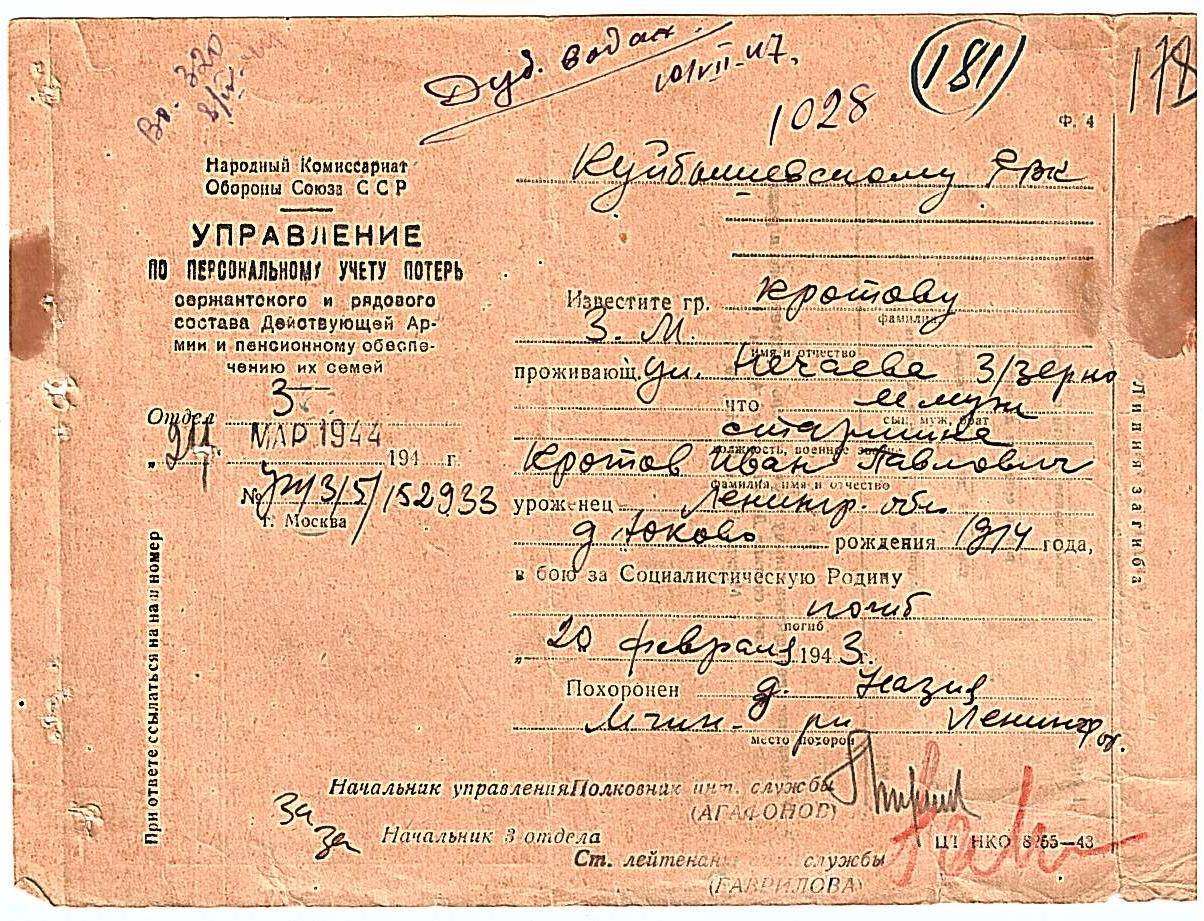 Во. 320
Дуб. водан.
10/VII-47.
181
178
1028
Ф. 4
Народный Комиссариат
Обороны Союза ССР
УПРАВЛЕНИЕ
ПО ПЕРСОНАЛЬНОМУ УЧЕТУ ПОТЕРЬ
сержантского и рядового
состава Действующей Ар-
мии и пенсионному обеспе-
чению их семей
Отдел 3
"24" МАР 1944 194 г.
№ 3/5/152933
г. Москва
При ответе ссылаться на наш номер
Куйбышевскому РВК
Известите гр. Кротову
фамилия
З. М.
имя и отчество
проживающ. ул. Нечаева 3/зерно
что муж
сын, муж, брат
старшина
должность, военное звание
Кротов Иван Павлович
фамилия, имя и отчество
уроженец Ленингр. обл
д Юково рождения 1914 года,
в бою за Социалистическую Родину
погиб
погиб
"20 февраля 1943 г.
Похоронен д. Назия
Мгин. р-н Ленингр об.
место похорон
Линия загиба
Начальник управления Полковник инт. службы
(АГАФОНОВ)
За
Начальник 3 отдела
за
Ст. лейтенант службы
(ГАВРИЛОВА)
ЦТ НКО 8255—43